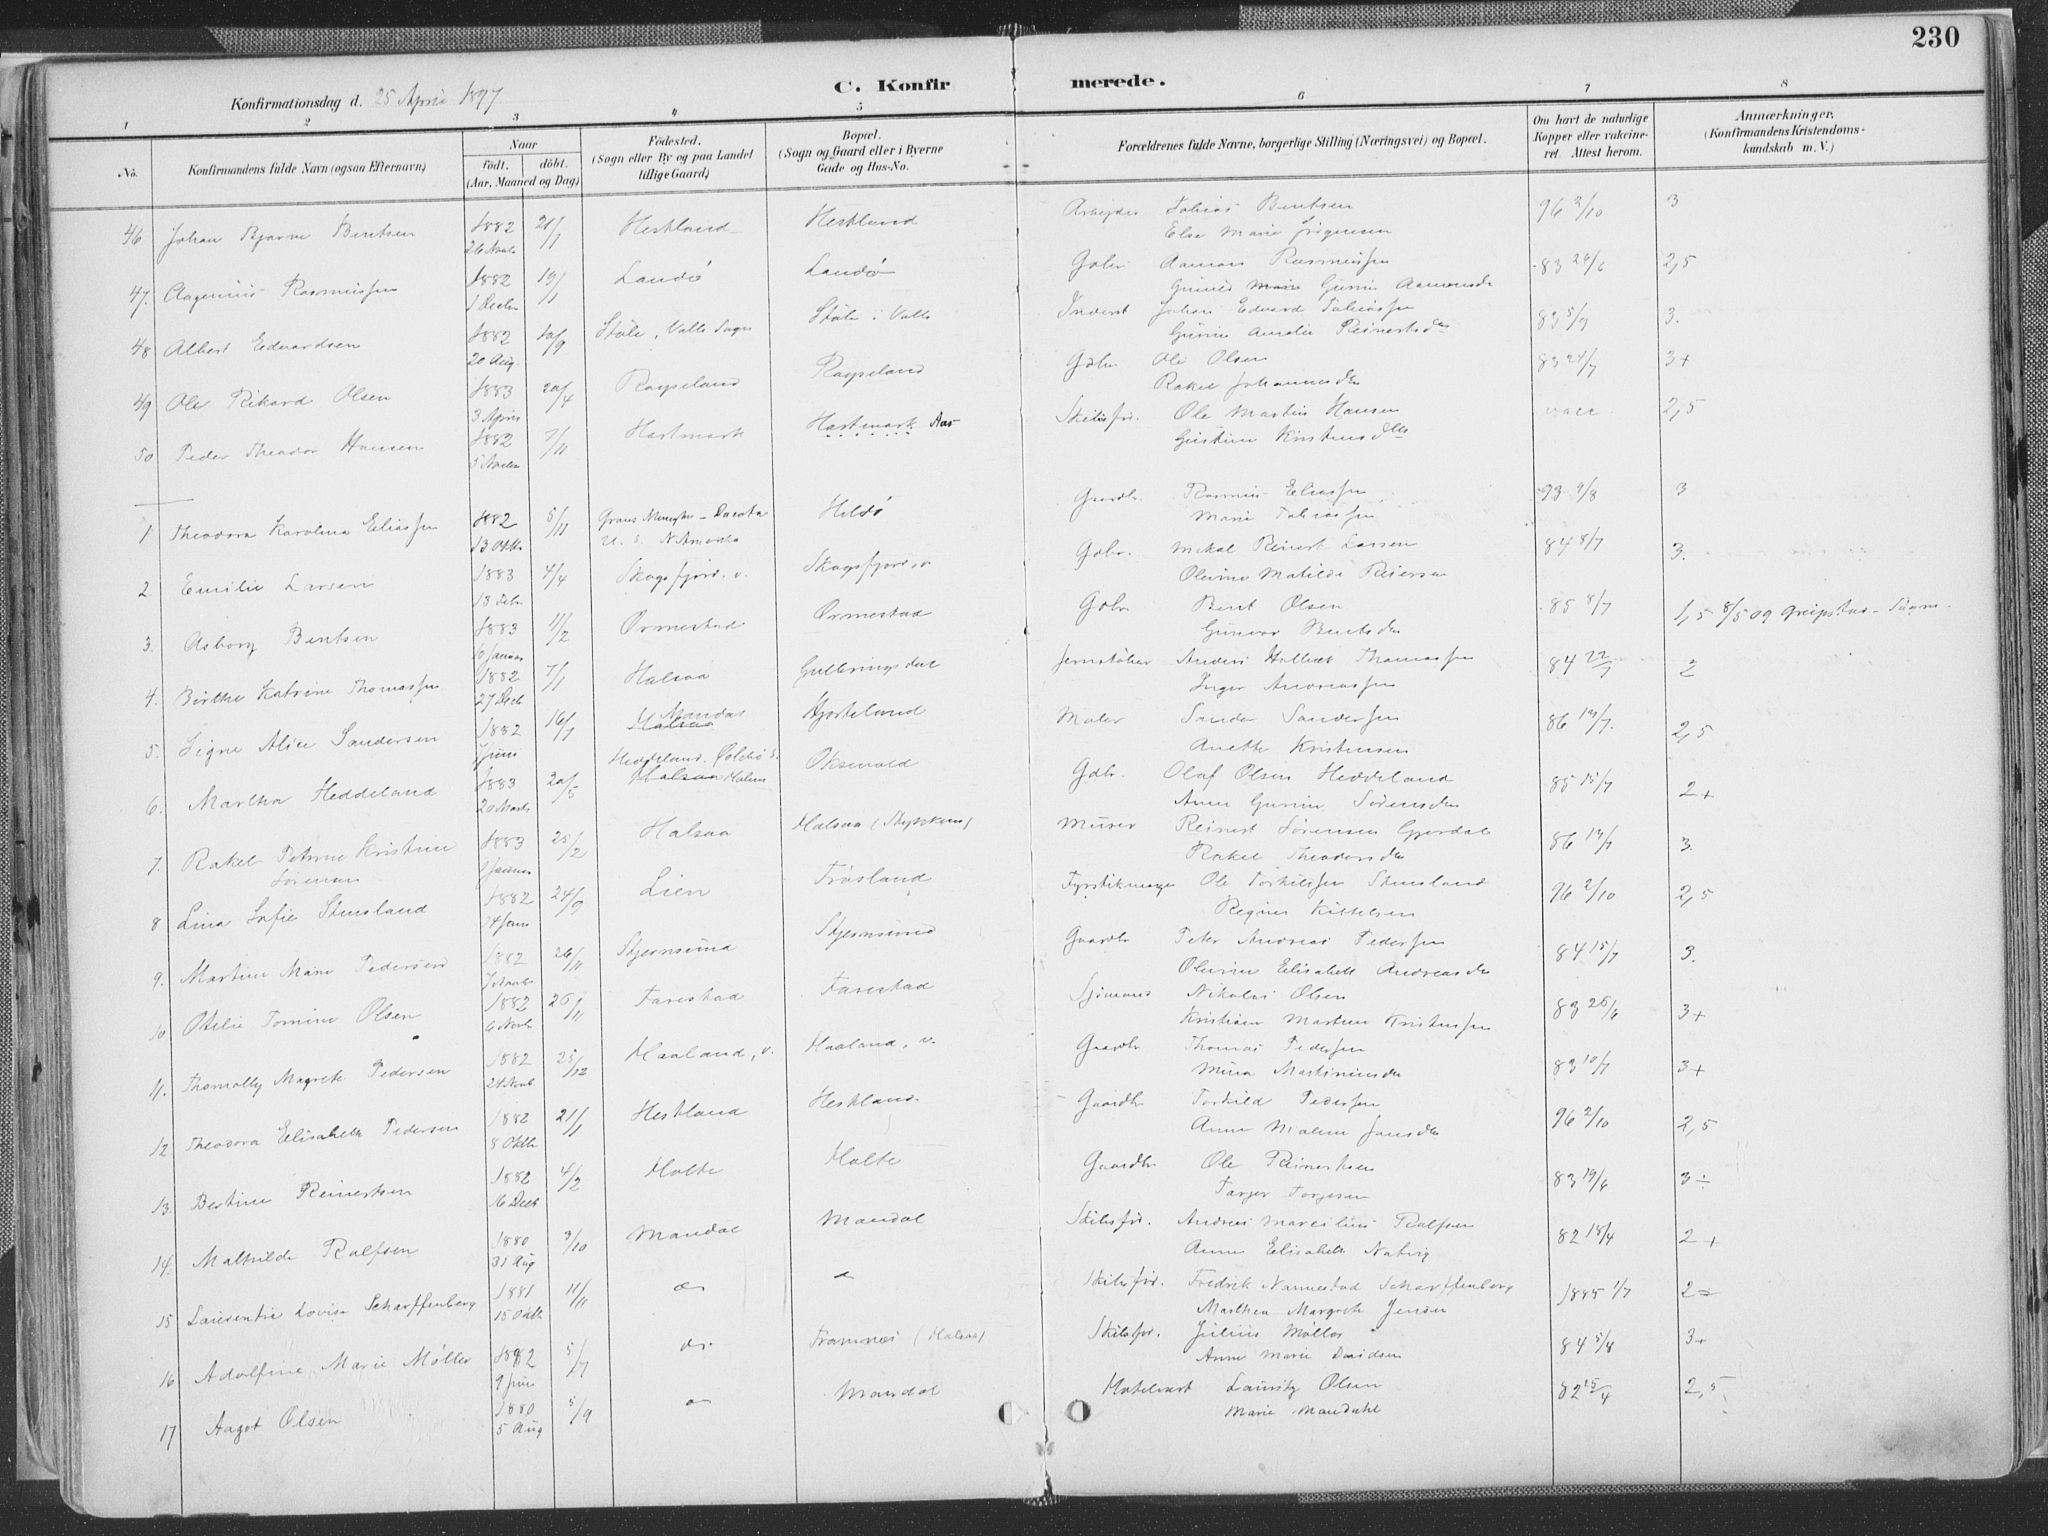 230
C. Konfir merede.
Konfirmationsdag d. 25 April 1897
1 2 3 4 5 6 7 8
No.
Konfirmandens fulde Navn (ogsaa Efternavn)
Naar
födt. döbt.
(Aar, Maaned og Dag)
Födested.
(Sogn eller By og paa Landet
tillige Gaard)
Bopæl.
(Sogn og Gaard eller i Byerne
Gade og Hus-No.
Forældrenes fulde Navne, borgerlige Stilling (Næringsvei) og Bopæl.
Om havt de naturlige
Kopper eller vakcine-
ret. Attest herom.
Anmærkninger.
(Konfirmandens Kristendoms-
kundskab m. V.)
46 Johan Bjarne Bentsen 1882 21/1 Hestland Hestland Arbejder Tobias Bentsen 96 2/10 3
26 Novbr Else Marie Jörgensen
47. Aagenius Rasmussen 1882 19/1 Landö Landö Gdbr Aamon Rasmussen 83 26/6 2,5
1 Decbr Gunvor Aamonsdr
48 Albert Edvardsen 1882 10/9 Støle, Valle Sogn Støle i Valle Inderst Johan Edvard Tobiassen 83 5/9 3.
20 Aug Amalie Reinertsdr
49 Ole Rikard Olsen 1883 20/4 Røyseland Røyseland Gdbr Ole Olsen 83 24/7 3+
3 April Rakel Johannesdr
50 Peder Theodor Hansen 1882 7/11 Hartmark Hartmark Aas Skibsfør. Ole Martin Hansen vacc. 2,5
5 Novbr Kristensdtr
1 Theodora Karolina Eliassen 1882 5/11 Dacota Hildö Gaardbr. Rasmus Eliassen 93 9/8 3
13 Oktb U. S. N. Amerika Marie Tobiassen
2 Emilie Larsen 1883 4/4 Skogsfjord, v. Skogsfjord, v Gdbr. Mikal Reinert Larsen 84 8/7 3.
13 Febr Olevine Matilde Reiersen
3. Asborg Bentsen 1883 11/2 Ormestad Ormestad Gdbr Bent Olsen 85 8/7 1,5 8/5 09 Greipstad - Søgne.
10 Januar Gunvor Bentsdr
4. Birthe Katrine Thomassen 1882 7/1 Halsaa Gulleringsdal Jernstøber Anders Thomassen 84 22/7 2
27 Decb Inger Andreassen
5. Signe Alice Sandersen 1882 16/7 Mandal Hjorteland Maler Sander Sandersen 86 19/7. 2,5
7 Juni Halsaa Anette Kristensen
6. Martha Heddeland 1883 20/5 Heddeland. Øslebø S. Oksevold Gdbr. Olaf Olsen Heddeland 85 15/7 2+
20 Marts Halsaa Holum Anne Gurine Sørensdr
7. Rakel Petrine Kristine 1883 25/2 Halsaa Halsaa Murer Reinert Sørensen Gjerdal 86 19/7 3.
Sørensen Januar Rakel Theodorsdr
8 Lina Sofie Stensland 1882 24/9 Lien Frøsland Ole Torkildsen Stensland 96 2/10 2,5
Regine Kittelsen
9. Martine Marie Pedersen 1882 26/11 Stjernsund Stjernsund Gaardbr Peter Andreas Pedersen 84 15/7 3.
7 Novbr Olevine Elisabeth Andreasdr
10 Otelie Tomine Olsen 1882 26/11 Farestad Farestad Sjømand Nikolai Olsen 83 26/6 3+
6 Novbr Kristiane Martine Kristensen
11. Thomolly Magrete Pedersen 1882 25/12 Haaland, v. Haaland, v. Gaardbr Thomas Pedersen 83 10/7 3+
24 Novb. Mina Martiniusdr
12 Theodora Elisabeth Pedersen 1882 21/1 Hestland Hestland. Gaardbr Torkild Pedersen 96 2/10 2,5
8 Oktb. Anne Malene Jansdr
13. Bertine Reinertsen 1882 4/2 Holte Holte Gaardbr Ole Reinertsen 83 19/6 3÷
16 Decb Tarjer Torjesen
14. Mathilde Rolfsen 1880 3/10 Mandal Mandal Skibsfør. Andreas Marcelius Rolfsen 82 18/4 2+
31 Aug Anne Elisabeth Natvig
15 Laurentze Lovise Scharffenberg 1881 11/11 do Skibsfør. Fredrik Nannestad Scharffenberg 1885 1/7 2÷
15 Oktb Marthea Margrete Jensen
16 Adolfine Marie Møller 1882 5/7 do. Framnæs (Halsaa) Skibsfør. Julius Møller 84 5/8 3+
9 Juni Anne Marie Davidsen
17 Aagot Olsen 1880 5/9 Mandal Hotelvert Lauritz Olsen 82 25/4 2,5
5 Aug Marie Mandahl